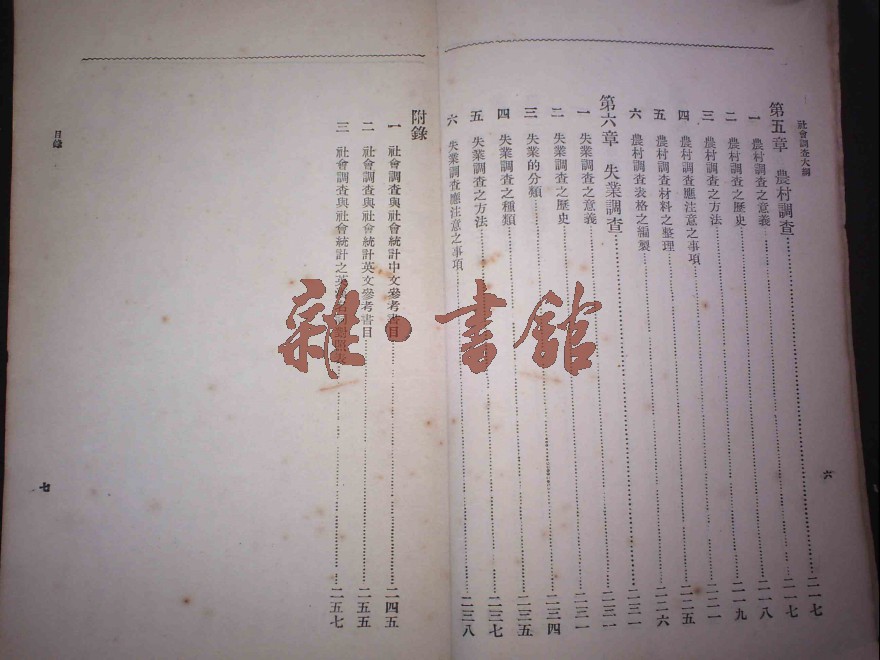 社會調查大綱
第五章 農村調查……二一七
一 農村調查之意義……二一七
二 農村調查之歷史……二一八
三 農村調查之方法……二一九
四 農村調查應注意之事項……二二一
五 農村調查材料之整理……二二五
六 農村調查表格之編製……二二六
第六章 失業調查……二三一
一 失業調查之意義……二三一
二 失業調查之歷史……二三一
三 失業的分類……二三四
四 失業調查之種類……二三五
五 失業調查之方法……二三七
六 失業調查應注意之事項……二三八
六
附錄
一 社會調查與社會統計中文參考書目……二四五
二 社會調查與社會統計英文參考書目……二五五
三 社會調查與社會統計之英……二五七
目錄
七
雜·書館